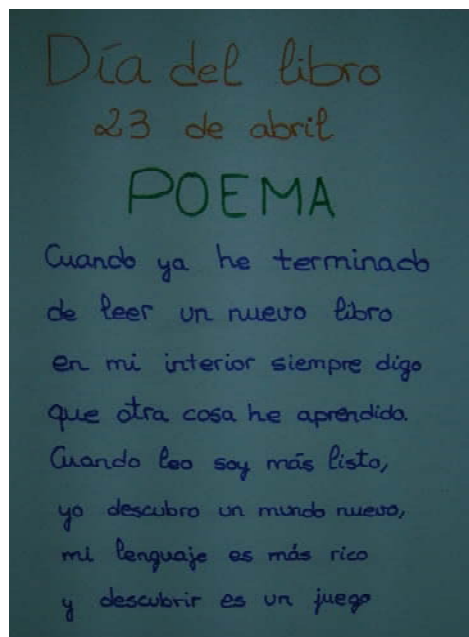 Día del libro
23 de abril
POEMA
Cuando ya he terminado
de leer un nuevo libro
en mi interior siempre digo
que otra cosa he aprendido.
Cuando leo soy más listo,
yo descubro un mundo nuevo,
mi lenguaje es más rico
y descubrir es un juego